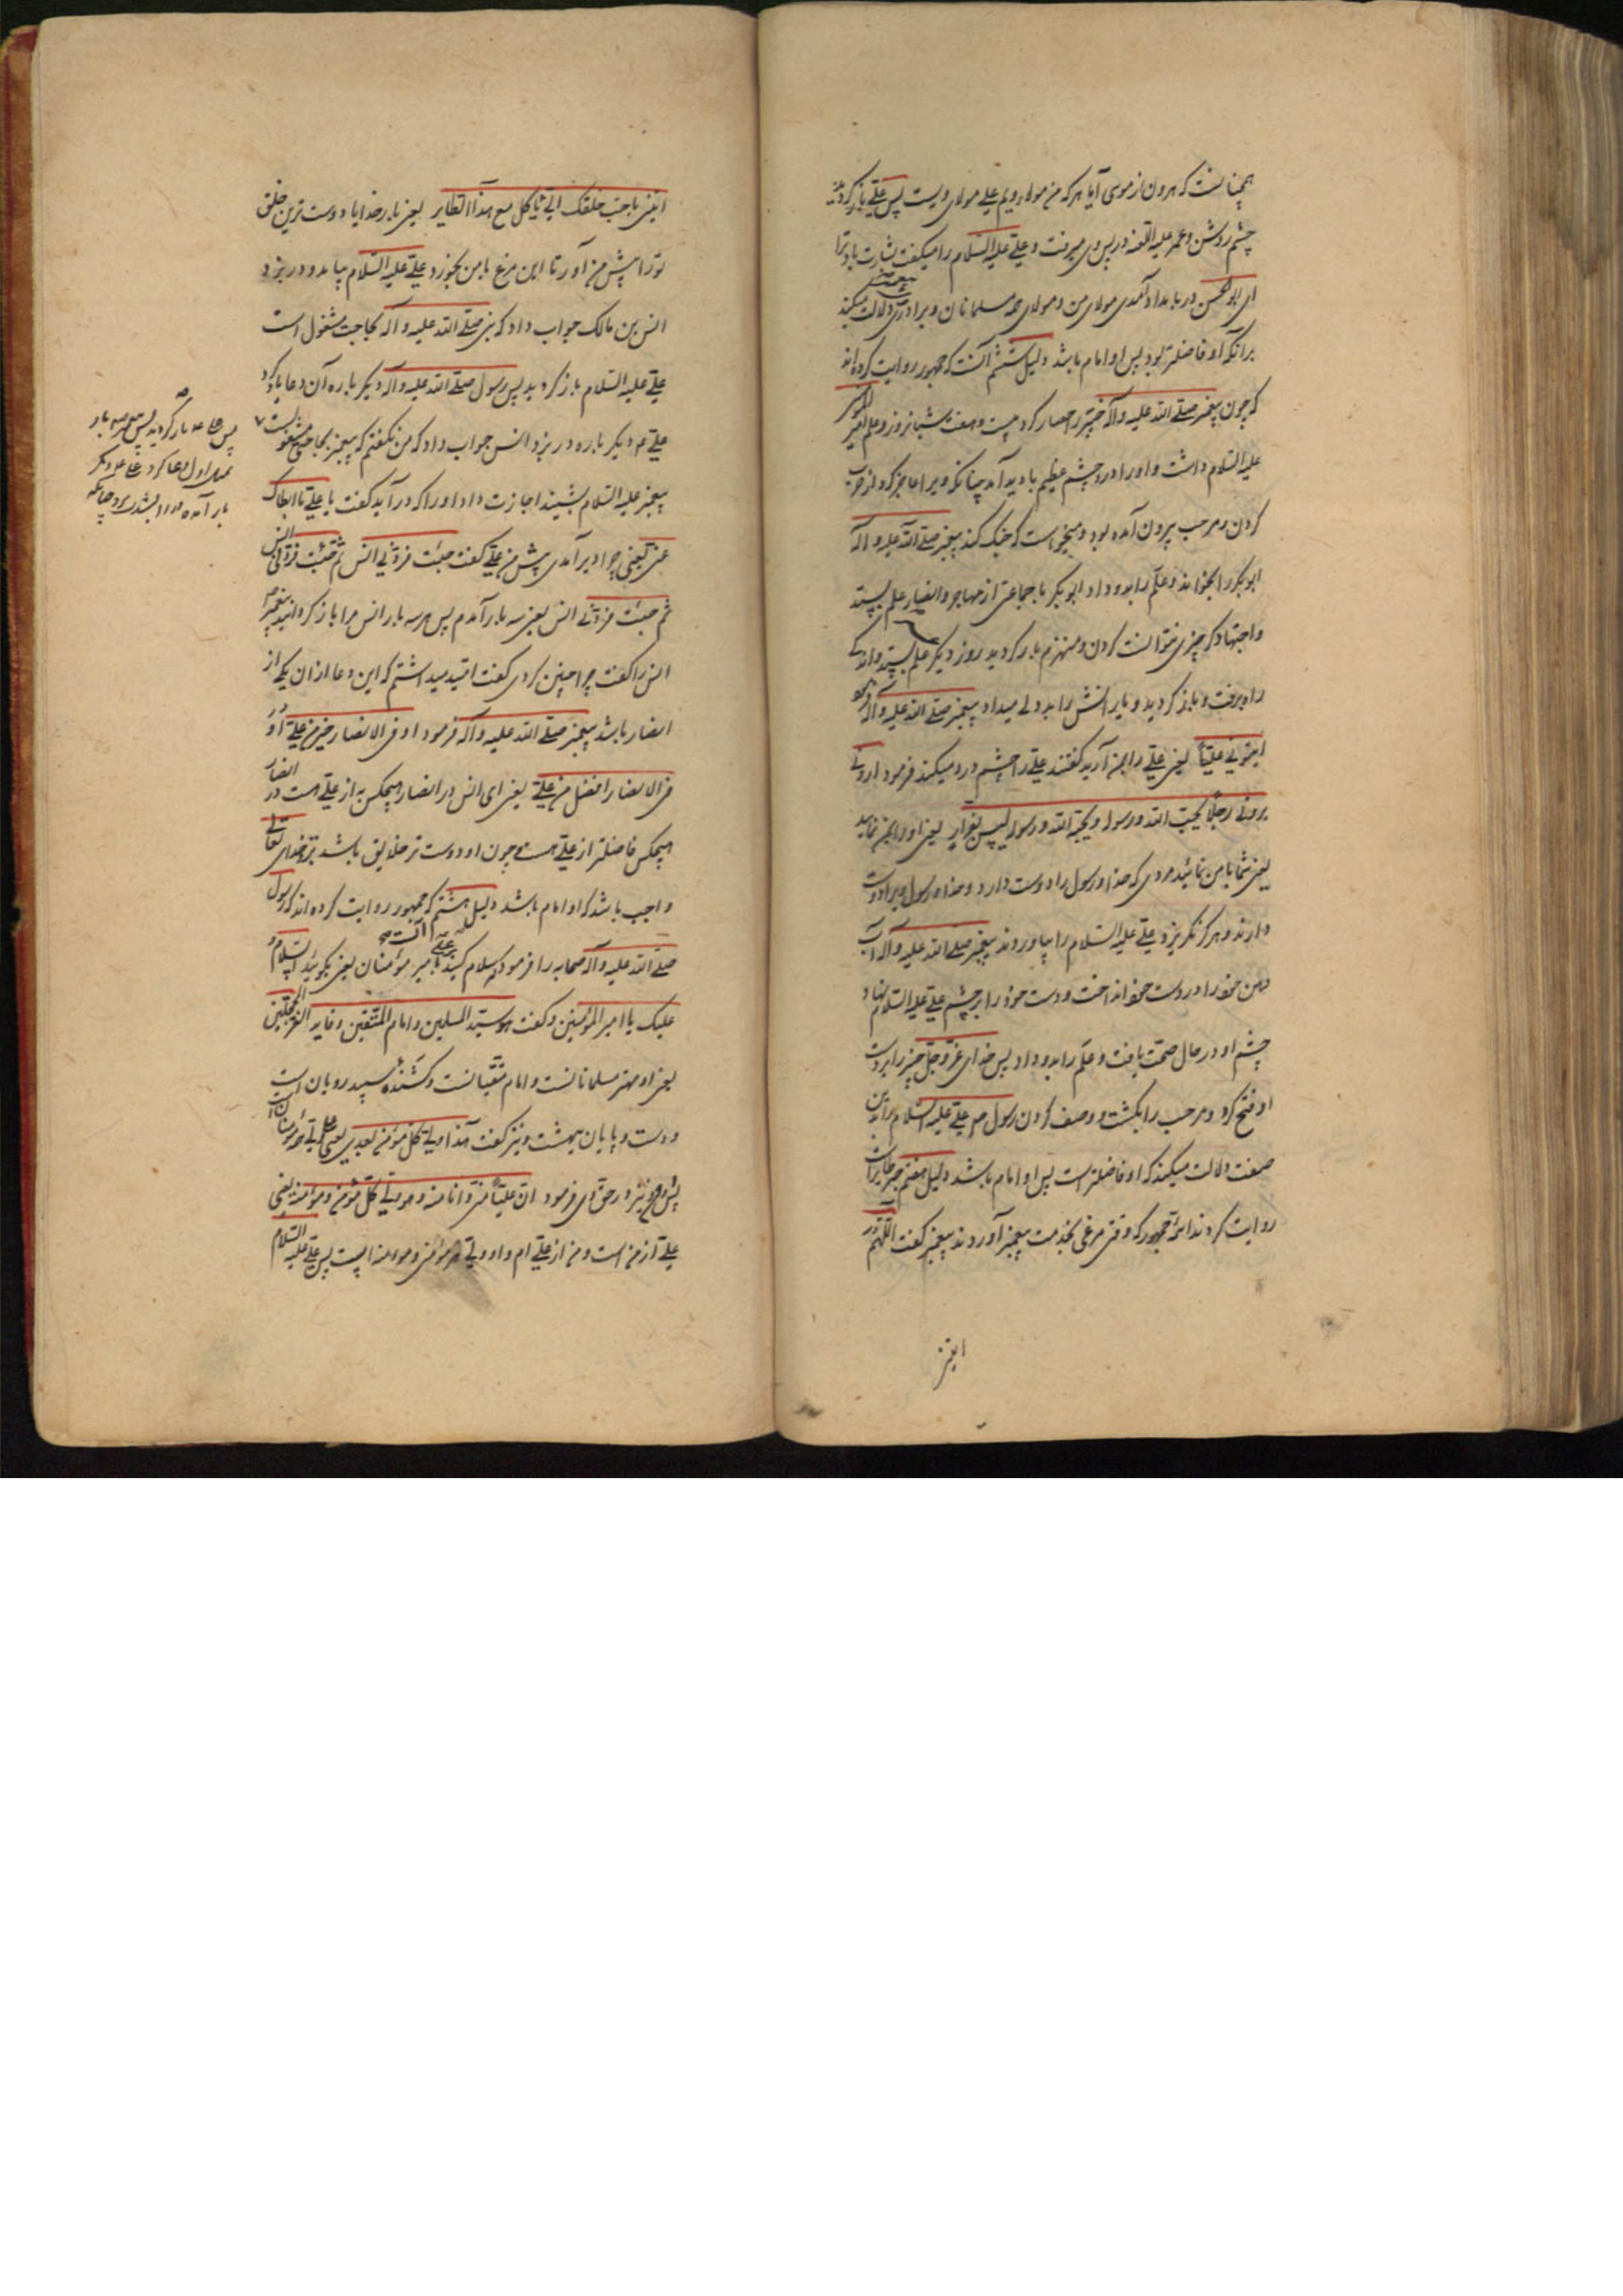 همچنانست که هرون از موسی آیا هر که من مولاء ویم علی مولای ویست پس علی باز کردید
چشم روشن و عمر علیه اللعنه در پس وی میرفت و علی علیه السلام را میکفت بشارت باد ترا
ای ابو الحسن در بامداد آمدی مولای من و مولای همه مسلمانان و برادری دلالت میکند
برآنکه او فاضلتر بود پس او امام باشد دلیل ششم آنست که جمهور روایت کرده اند
که چون پیغمبر صلی الله علیه وآله خیبر را حصار کرد بیست و هفت شبانروز و علم امیر المومنین
علیه السلام داشت و او را درد چشم عظیم با دید آمد چنانکه ویرا عاجز کرد از حرب
کردن و مرحب بیرون آمده بود و میخواست که جنک کند پیغمبر صلی الله علیه و آله
ابوبکر را بخواند و علم را بدو داد ابوبکر با جماعتی از مهاجر و انصار علم بستد
و اجتهاد کرد چیزی نتوانست کردن و منهزم باز کردید روز دیکر علم بستد و اندکی
راه برفت و باز کردید و یارانش را بد دلی میداد پیغمبر صلی الله علیه وآله فرمود
ایتونی علیّاً یعنی علی را بمن آرید کفتند علی را چشم درد میکند فرمود ارونی
برونی رجلاً یحبّ الله و رسوله و یحبّه الله و رسوله لیس بفرّار یعنی او را بمن نمایید
یعنی شما با من نمائید مردی که خدا و رسول را دوست دارد و خدا و رسول ویرا دوست
دارند و هرکز نکریزد علی علیه السلام را بیاوردند پیغمبر صلی الله علیه وآله آب
دهن خود را در دست خود انداخت و دست خود را بر چشم علی علیه السلام نهاد
چشم او در حال صحّت یافت و علم را بدو داد پس خدای عزّ و جلّ خیبر را بر دست
او فتح کرد و مرحب را بکشت و وصف کردن رسول ص علی علیه السلام را بدین
صفت دلالت میکند که او فاضلتر است پس او امام باشد دلیل هفتم خبر طایر است
روایت کردند ائمّه جمهور که وقتی مرغی بخدمت پیغمبر آوردند پیغمبر کفت اللّهمّ
ایتنی
ایتنی باحبّ خلقک الیّ یاکل مع هذا الطایر یعنی بار خدایا دوست ترین خلق
تو را پیش من آور تا این مرغ با من بخورد علی علیه السلام بیامد و در بزد
انس بن مالک جواب داد که نبی صلی الله علیه و آله بحاجت مشغول است
علی علیه السلام باز کردید پس رسول صلی الله علیه وآله دیکر باره آن دعا باز کرد
علی ع دیکر باره در بزد انس جواب داد که من نکفتم که پیغمبر بحاجتی مشغولست
پیغمبر علیه السلام بشنید اجازت داد او را که درآید کفت یا علی ما ابطاک
عنی یعنی چرا دیر آمدی پیش من علی کفت جئت فردّنی انس ثم جئت فردّنی انس
ثم جئت فردّنی انس یعنی سه بار آمدم پس هر سه بار انس مرا باز کردانید پیغمبر ص
انس را کفت چرا چنین کردی کفت امّید میداشتم که این دعا از ان یکی از
انصار باشد پیغمبر صلی الله علیه وآله فرمود او فی الانصار خیر من علی او
فی الانصار افضل من علی یعنی ای انس در انصار هیچکس به از علی هست در انصار
هیچکس فاضلتر از علی هست چون او دوست تر خلایق باشد نزد خدای تعالی
واجب باشد که او امام باشد دلیل هشتم آنست که جمهور روایت کرده اند که رسول
صلی الله علیه وآله صحابه را فرمود که سلام کنید بر علی بامیر مؤمنان یعنی بکوئید السلام
علیک یا امیر المؤمنین و کفت هو سیّد المسلمین و امام المتّقین و قاید الغرّ المحجّلین
یعنی او مهتر مسلمانانست و امام متّقیانست و کشنده سپید رویان است
و دست و پایان بهشت و نیز کفت هذا ولی کلّ مؤمن بعدی یعنی علی ولی همه مؤمنانست
پس از من و نیز در حق وی فرمود انّ علیّاً منّی و انا منه و هو ولی کلّ مؤمن و مؤمنة یعنی
علی از من است و من از علی ام و او ولی هر مؤمنی و مومنه ایست پس علی علیه السلام
پس علی ع باز کردید پس پیغمبر ص بار
اول دعا کرد علی ع دیکر
بار آمد